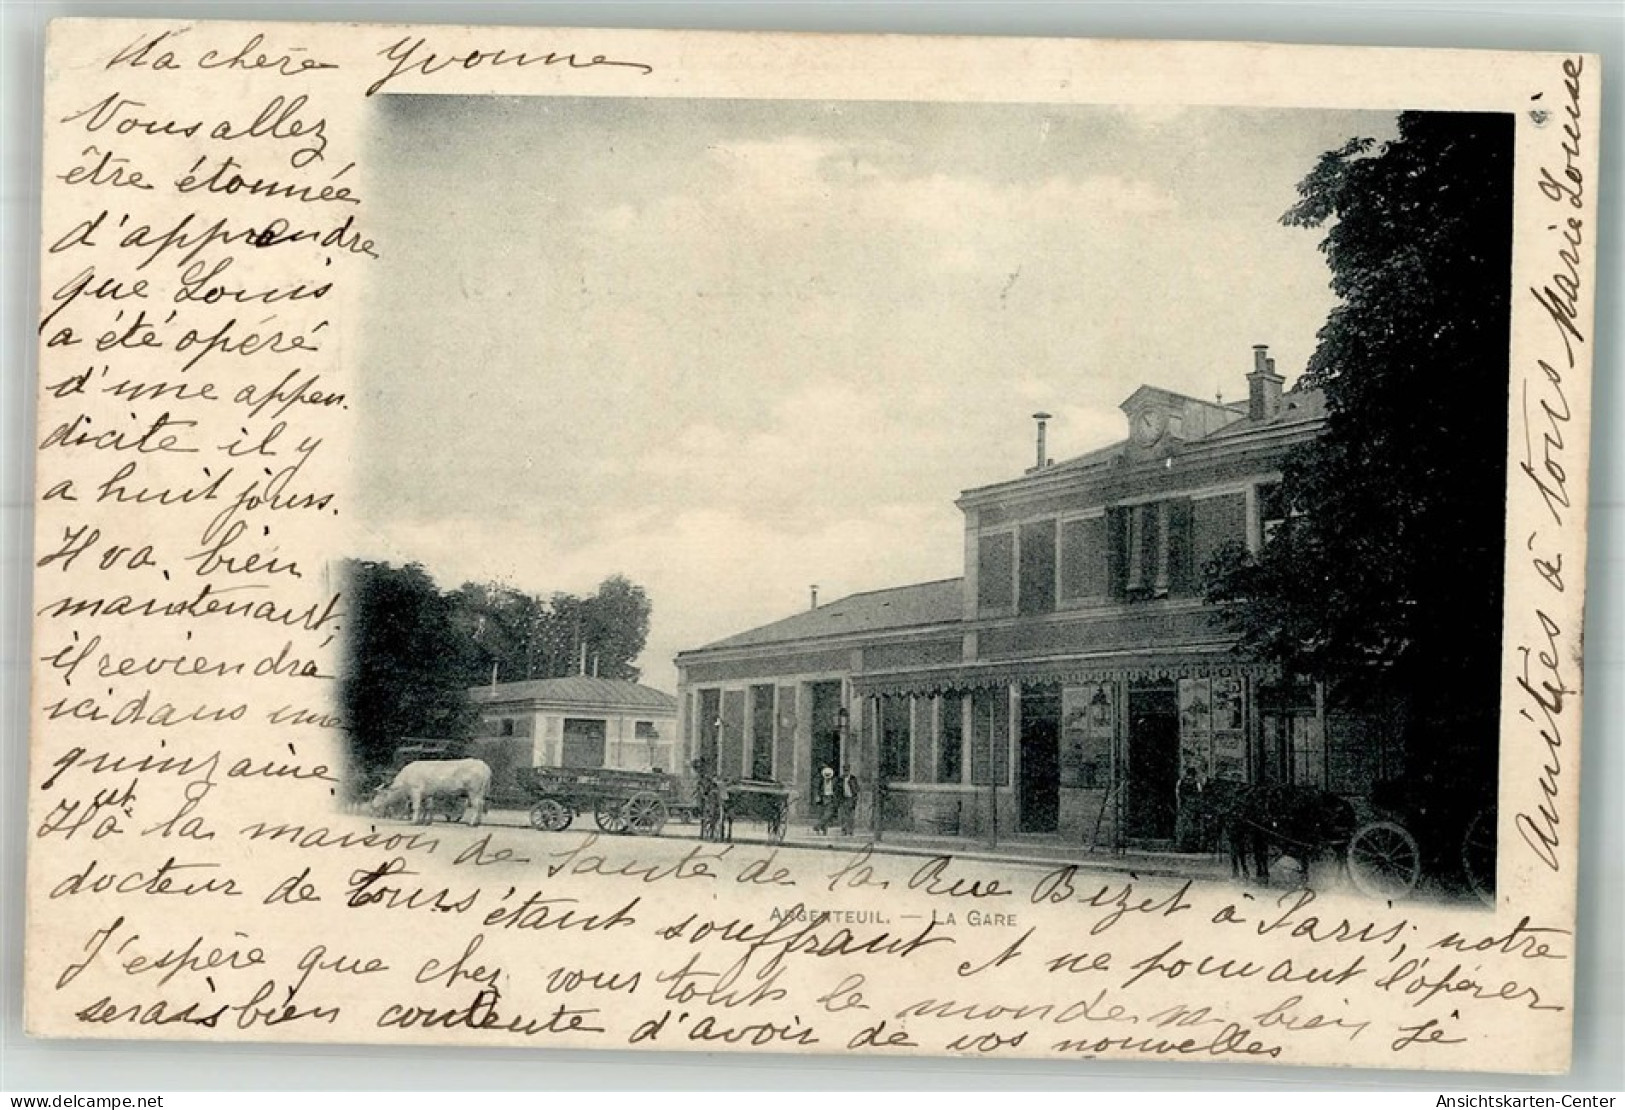 Ma chère Yvonne
Vous allez
être étonnée
d'apprendre
que Louis
a été opéré
d'une appen.
dicite il y
a huit jours.
Il va bien
maintenant,
il reviendra
ici dans une
quinzaine.
Il est à la maison de Santé de la Rue Bizet à Paris, notre
docteur de Tours étant souffrant et ne pouvant l'opérer
J'espère que chez vous tout le monde va bien, je
serais bien contente d'avoir de vos nouvelles
Amitiés à tous Marie Louise
ARGENTEUIL. — LA GARE
delcampe.net
Ansichtskarten-Center